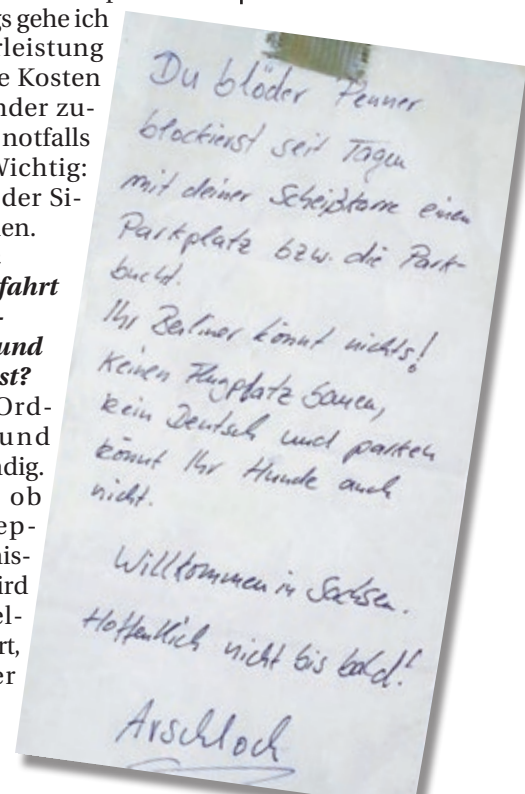 gs gehe ich
rleistung
e Kosten
nder zu-
notfalls
Wichtig:
der Si-
en.
fahrt
-
und
st?
Ord-
und
ndig.
ob
ep-
is-
ird
el-
rt,
er
Du blöder Penner
blockierst seit Tagen
mit deiner Scheißkarre einen
Parkplatz bzw. die Park-
bucht.
Ihr Berliner könnt nichts!
Keinen Flugplatz bauen,
kein Deutsch und parken
könnt Ihr Hunde auch
nicht.
Willkommen in Sachsen.
Hoffentlich nicht bis bald!
Arschloch